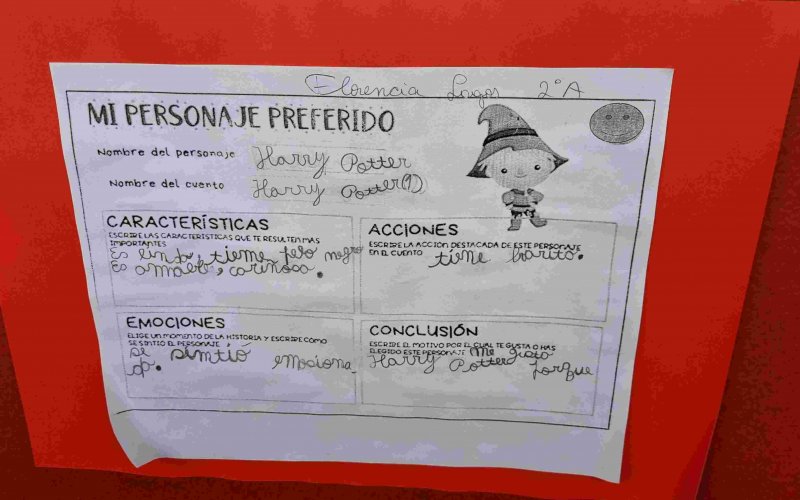 Florencia Lugos 2°A
MI PERSONAJE PREFERIDO
Nombre del personaje Harry Potter
Nombre del cuento Harry Potter(1)
CARACTERÍSTICAS
ESCRIBE LAS CARACTERÍSTICAS QUE TE RESULTEN MAS
IMPORTANTES
Es lindo, tiene pelo negro
Es amable, cariñoso.
ACCIONES
ESCRIBE LA ACCIÓN DESTACADA DE ESTE PERSONAJE
EN EL CUENTO tiene barita.
EMOCIONES
ELIGE UN MOMENTO DE LA HISTORIA Y ESCRIBE CÓMO
SE SINTIÓ EL PERSONAJE
se simtió emociona
do.
CONCLUSIÓN
ESCRIBE EL MOTIVO POR EL CUAL TE GUSTA O HAS
ELEGIDO ESTE PERSONAJE Me gusto
Harry Potter porque